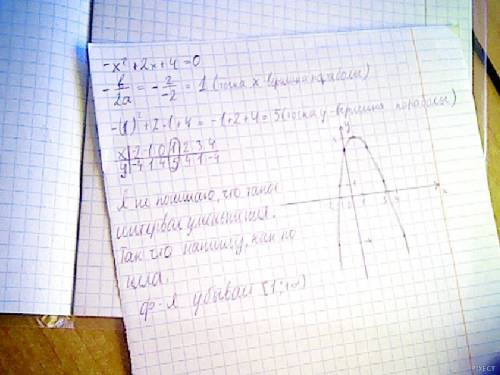 -x² + 2x + 4 = 0
- b/2a = - 2/-2 = 1 (точка x вершина параболы)
-(1)² + 2·1 + 4 = -1 + 2 + 4 = 5 (точка y вершина параболы)
x -2 -1 0 1 2 3 4
y -4 1 4 5 4 1 -4
Я не понимаю, что такое
интервал уменьшения.
Так что напишу, как по
ф-я убывает [1;+∞)
y
PIXECT